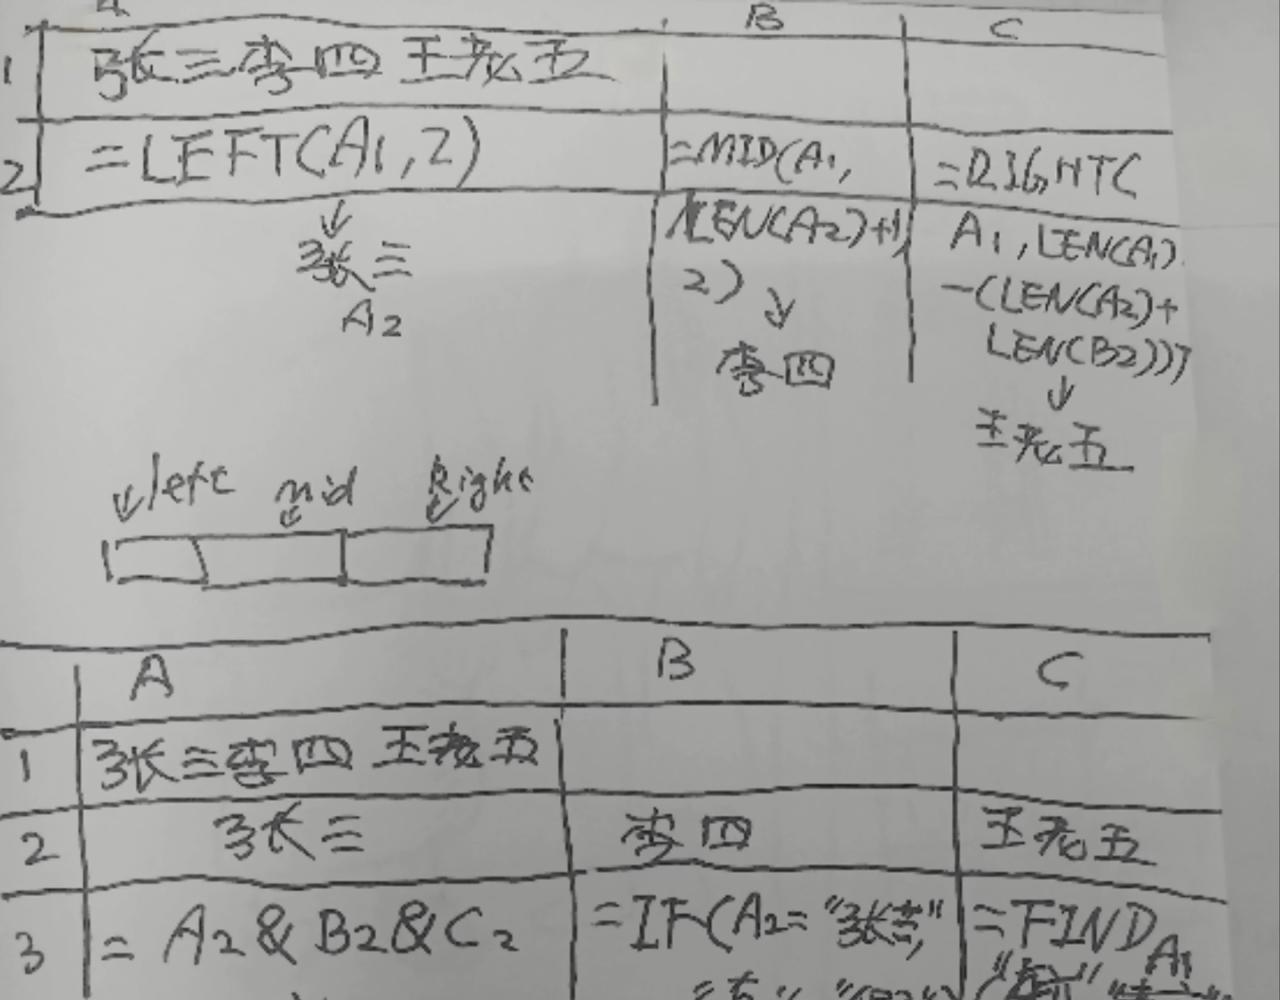 A B C
1 张三李四王老五
2 =LEFT(A1,2) =MID(A1, =RIGHT(
LEN(A2)+1, A1,LEN(A1)
↓ 张三 2) -(LEN(A2)+
A2 ↓ LEN(B2)))
李四 ↓
王老五
left mid Right
A B C
1 张三李四王老五
2 张三 李四 王老五
3 =A2&B2&C2 =IF(A2="张三", =FIND
A1